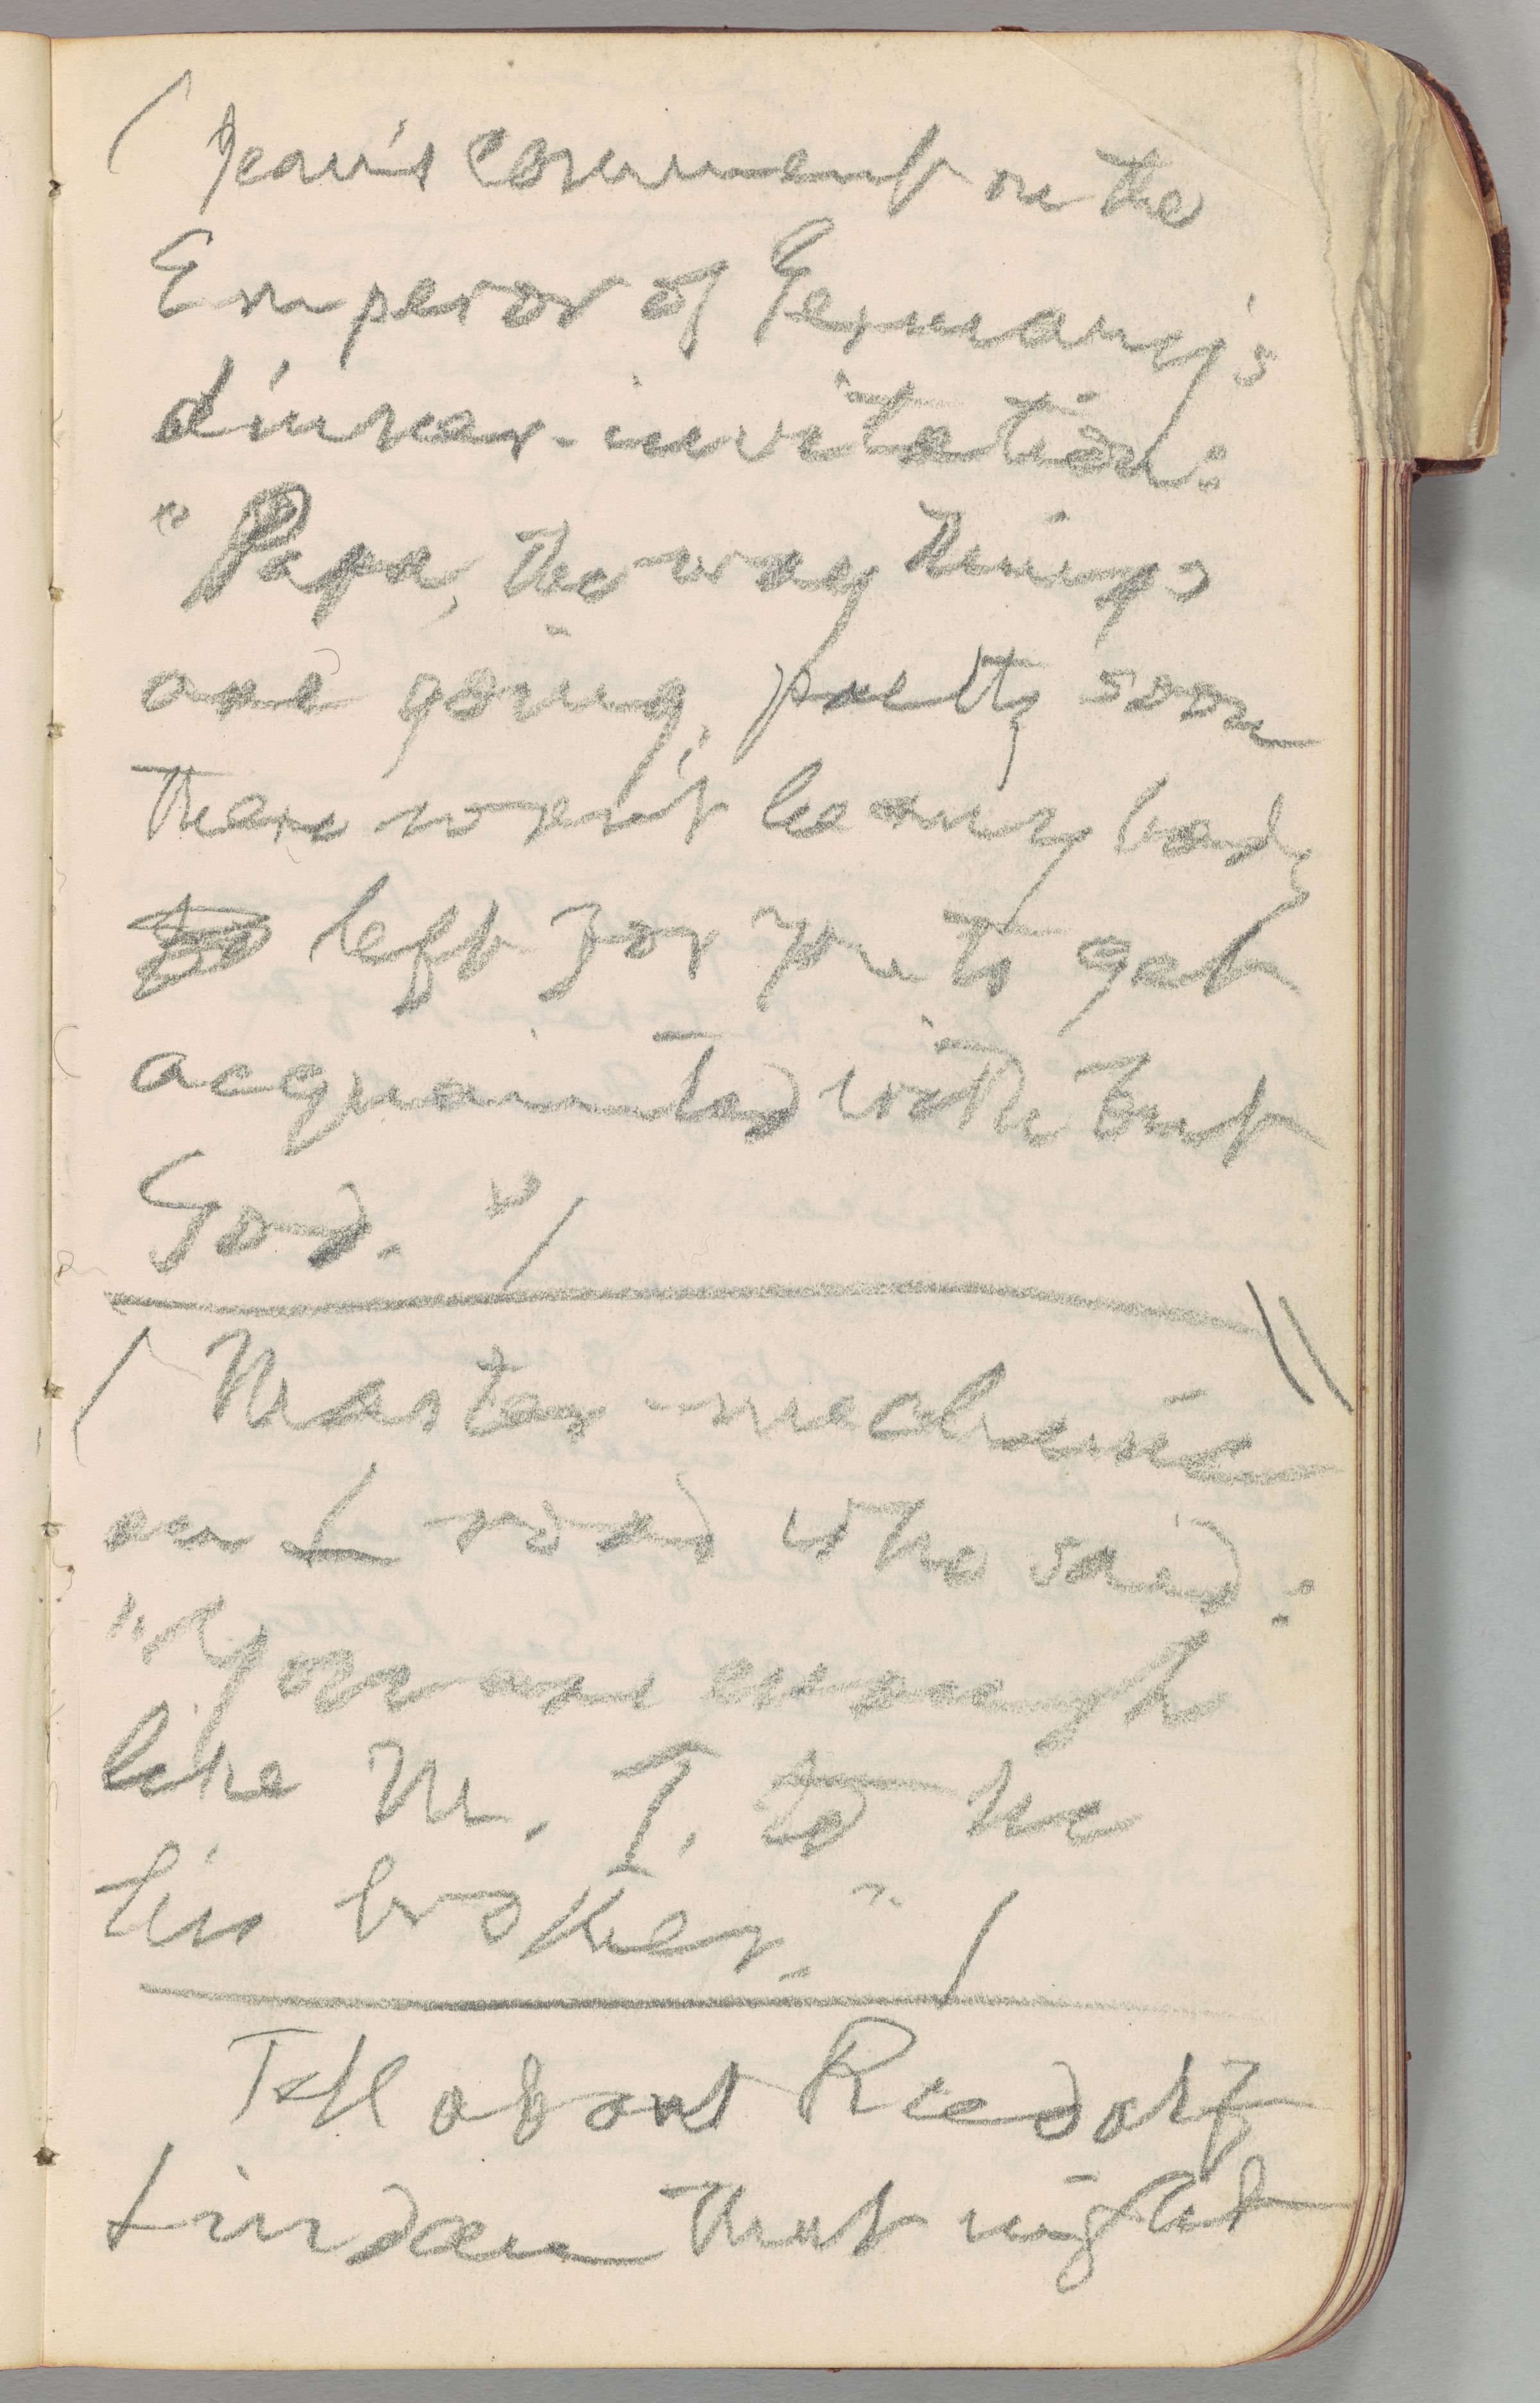 ( Jean's comment on the
Emperor of Germany's
dinner-invitation:
"Papa, the way things
are going, pretty soon
there won't be anybody
left for you to get
acquainted with but
God." /
( Master-mechanic
on L road who said:
"You are enough
like M. T. to be
his brother." /
Tell about Rudolf
Lindau that night